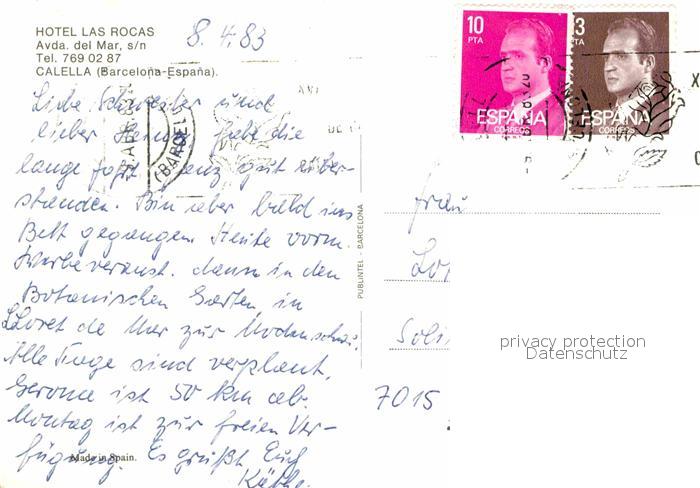 HOTEL LAS ROCAS
Avda. del Mar, s/n
Tel. 769 02 87
CALELLA (Barcelona-España).
8.4.83
Liebe Schwester und
lieber habe die
lange Fahrt ganz gut über-
standen. Bin aber bald ins
Bett gegangen. Heute vorm.
Werbeveranst. dann in den
Botanischen Garten in
LLoret de Mar zur Modenschau.
Alle Tage sind verplant.
Gerona ist 50 km ab.
Montag ist zur freien Ver-
fügung. Es grüßt Euch
Käthe.
Made in Spain.
PUBLINTEL - BARCELONA
10
PTA
ESPAÑA
CORREOS
3
PTA
ESPAÑA
CORREOS
(BARCEL
Frau
Lo
Soli
7015
privacy protection
Datenschutz